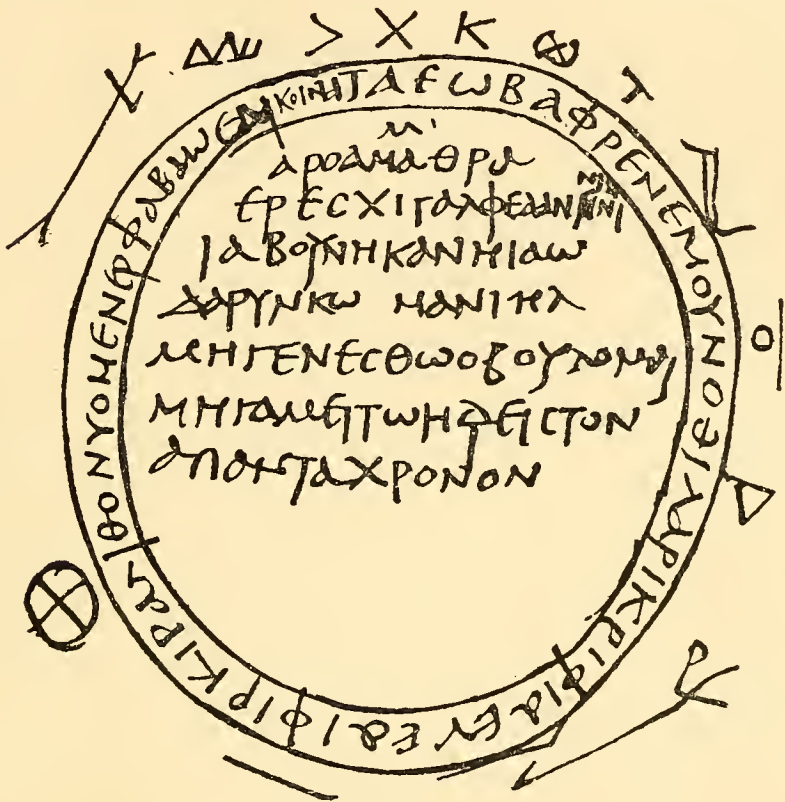 ΙΑΕΩΒΑΦΡΕΝΕΜΟΥΝΟΘΙΛΑΡΙΚΡΙΦΙΑΕΥΕΑΙΦΙΡΚΙΡΑΛΙΘΟΝΥΟΜΕΝΕΡΦΑΒΑΩΕΑΙ ΚΟΙΝΑ
ΑΡΟΑΜΑΘΡΑ
ΕΡΕϹΧΙΓΑΛΦΕΔΑΝ
ΙΑΒΟΥΝΗΚΑΝΗΙΑΩ
ΔΑΡΥΝΚΩ ΜΑΝΙΗΛ
ΜΗΓΕΝΕϹΘΩΟΒΟΥΛΟΜΑΙ
ΜΗΓΑΜΕΙΤΩΗΔΕΙϹΤΟΝ
ΑΠΑΝΤΑΧΡΟΝΟΝ